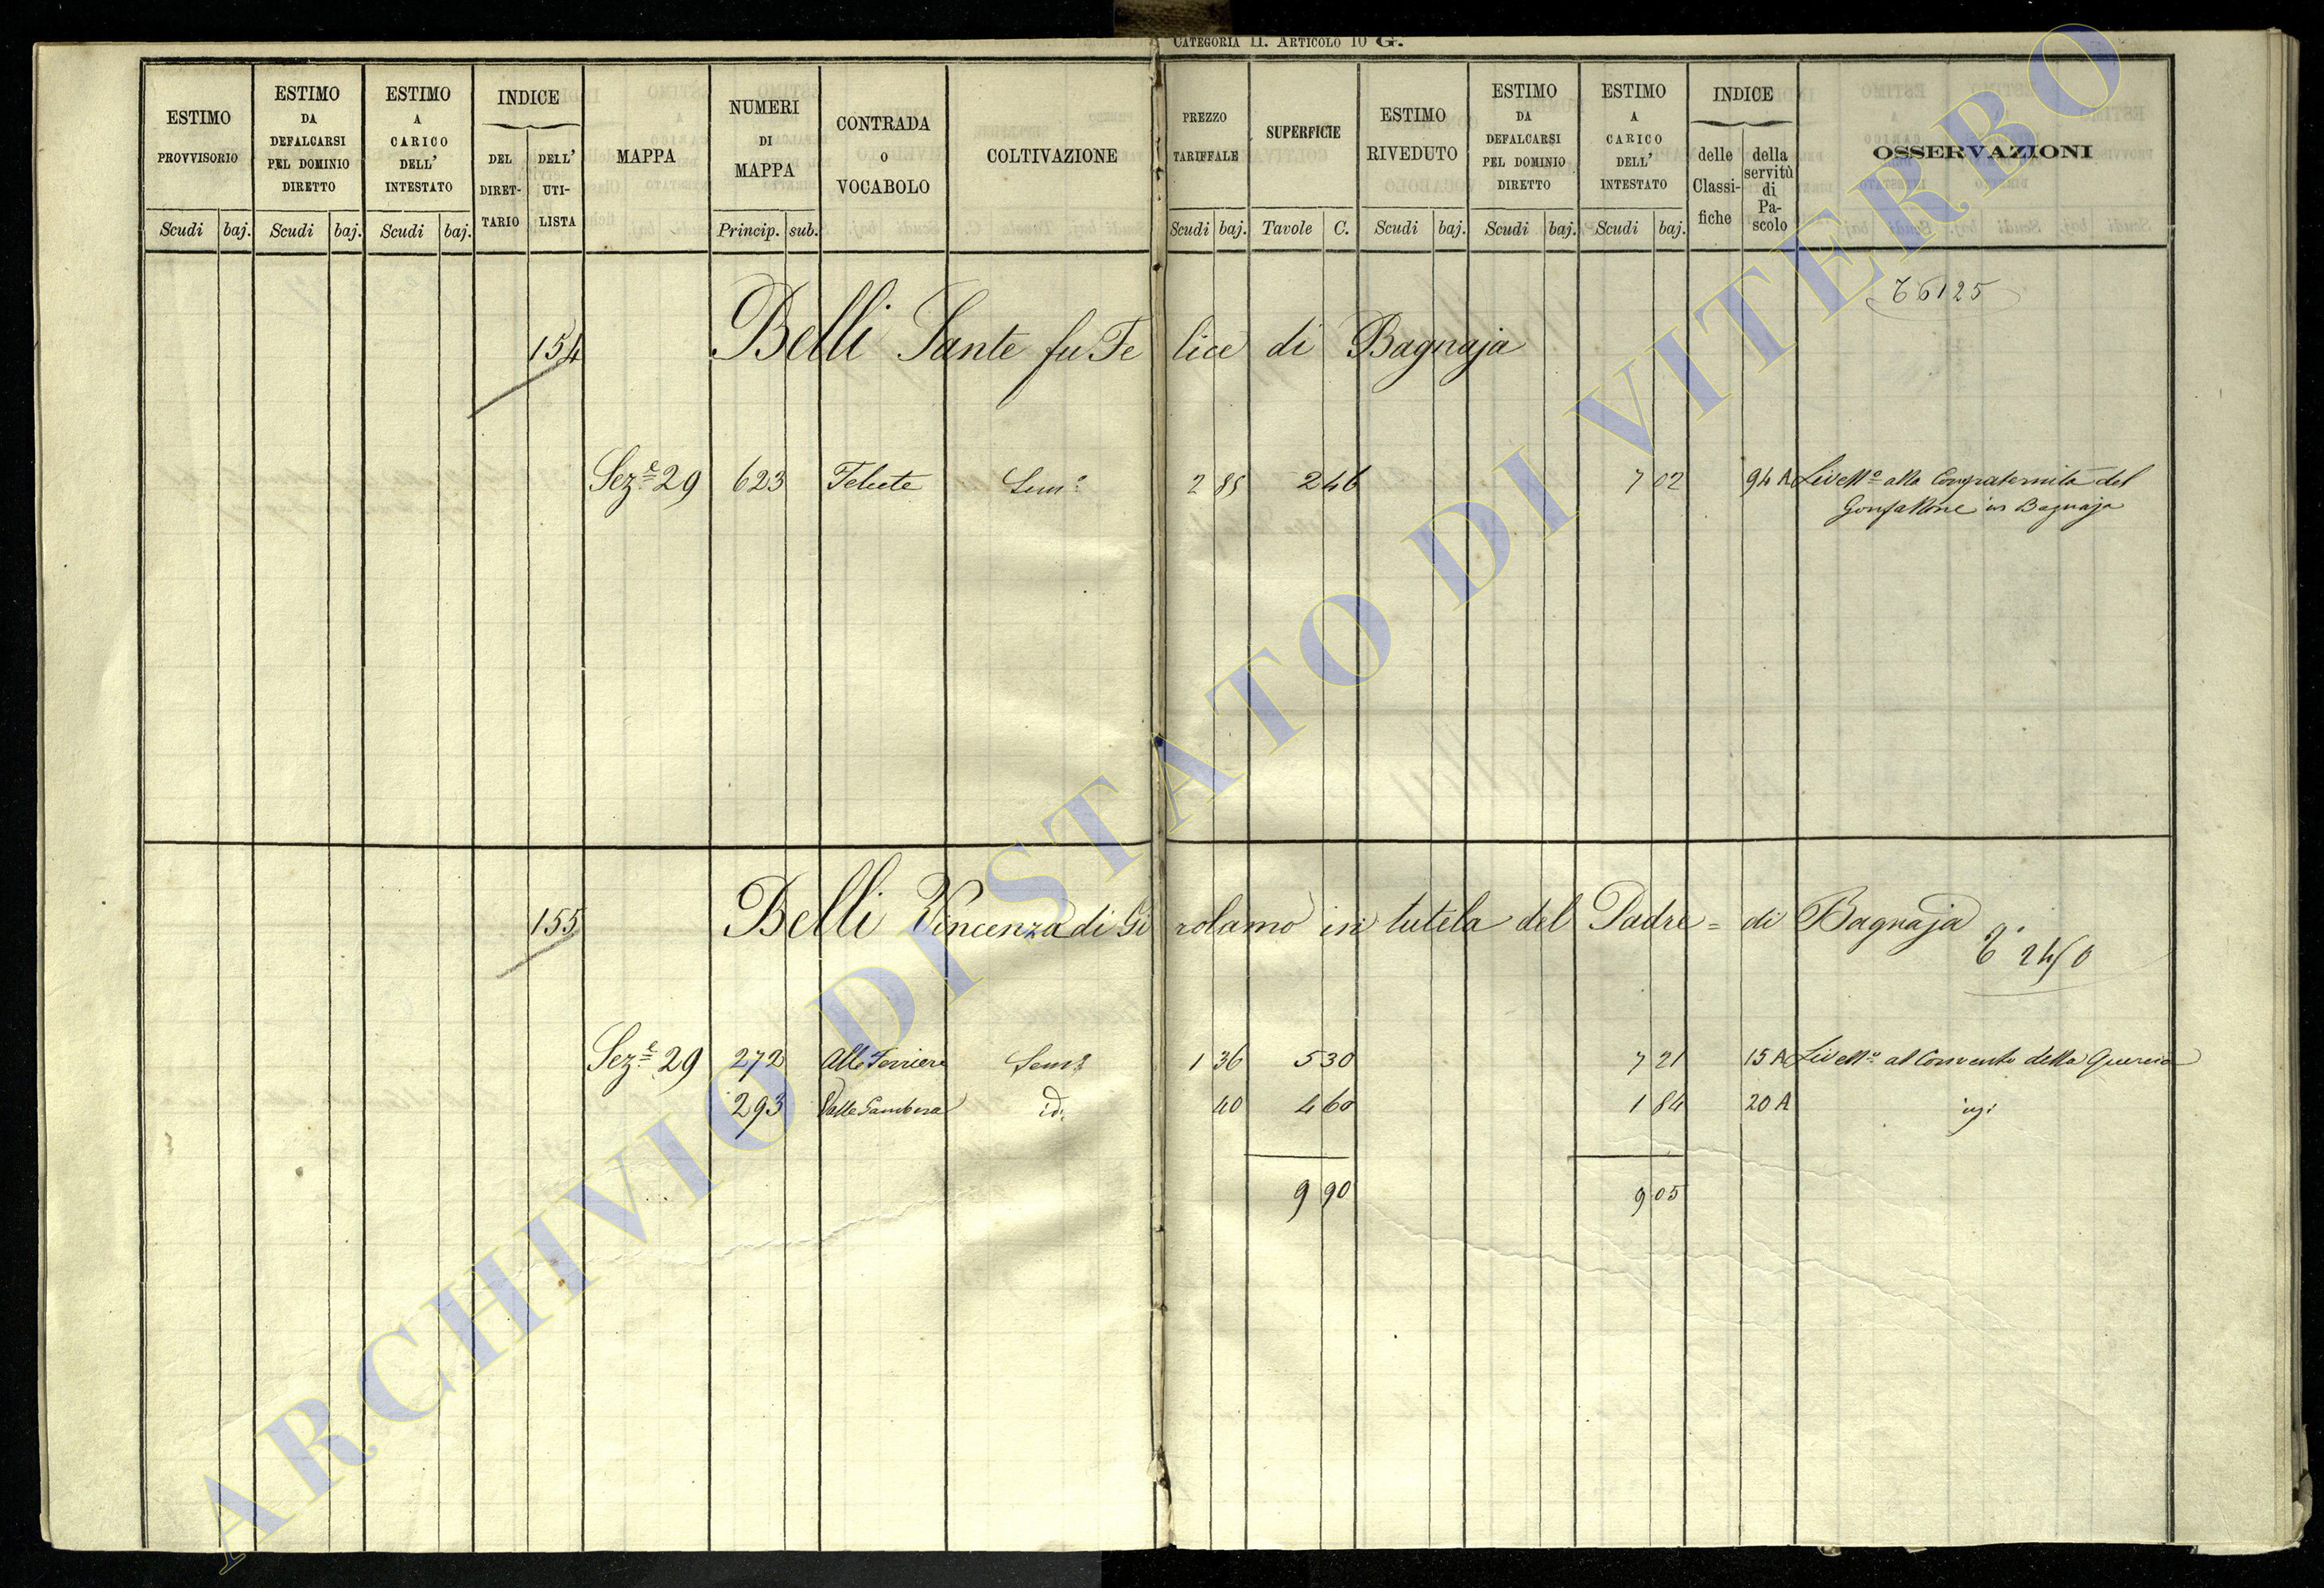 CATEGORIA II. ARTICOLO 10 G.
ESTIMO PROVVISORIO
ESTIMO DA DEFALCARSI PEL DOMINIO DIRETTO
ESTIMO A CARICO DELL' INTESTATO
INDICE
DEL DIRET-TARIO
DELL' UTI-LISTA
MAPPA
NUMERI DI MAPPA
CONTRADA O VOCABOLO
COLTIVAZIONE
PREZZO TARIFFALE
SUPERFICIE
ESTIMO RIVEDUTO
ESTIMO DA DEFALCARSI PEL DOMINIO DIRETTO
ESTIMO A CARICO DELL' INTESTATO
INDICE
delle Classi-fiche
della servitù di Pa-scolo
OSSERVAZIONI
Scudi baj. Scudi baj. Scudi baj. Princip. sub. Scudi baj. Tavole C. Scudi baj. Scudi baj. Scudi baj.
6125
154 Belli Sante fu Felice di Bagnaja
Sez.e 29 623 Sem.o 2 85 2 46 7 02 94 A Livell.o alla Confraternita del
Gonfallone in Bagnaja
155 Belli Vincenza di Girolamo in tutela del Padre = di Bagnaja
Sez.e 29 272 Alle Ferriere Sem.o 1 36 5 30 7 21 15 A Livell.o al Convento della Quercia
293 Valle Gambera id. 40 4 60 1 84 20 A
9 90 9 05
ARCHIVIO DI STATO DI VITERBO